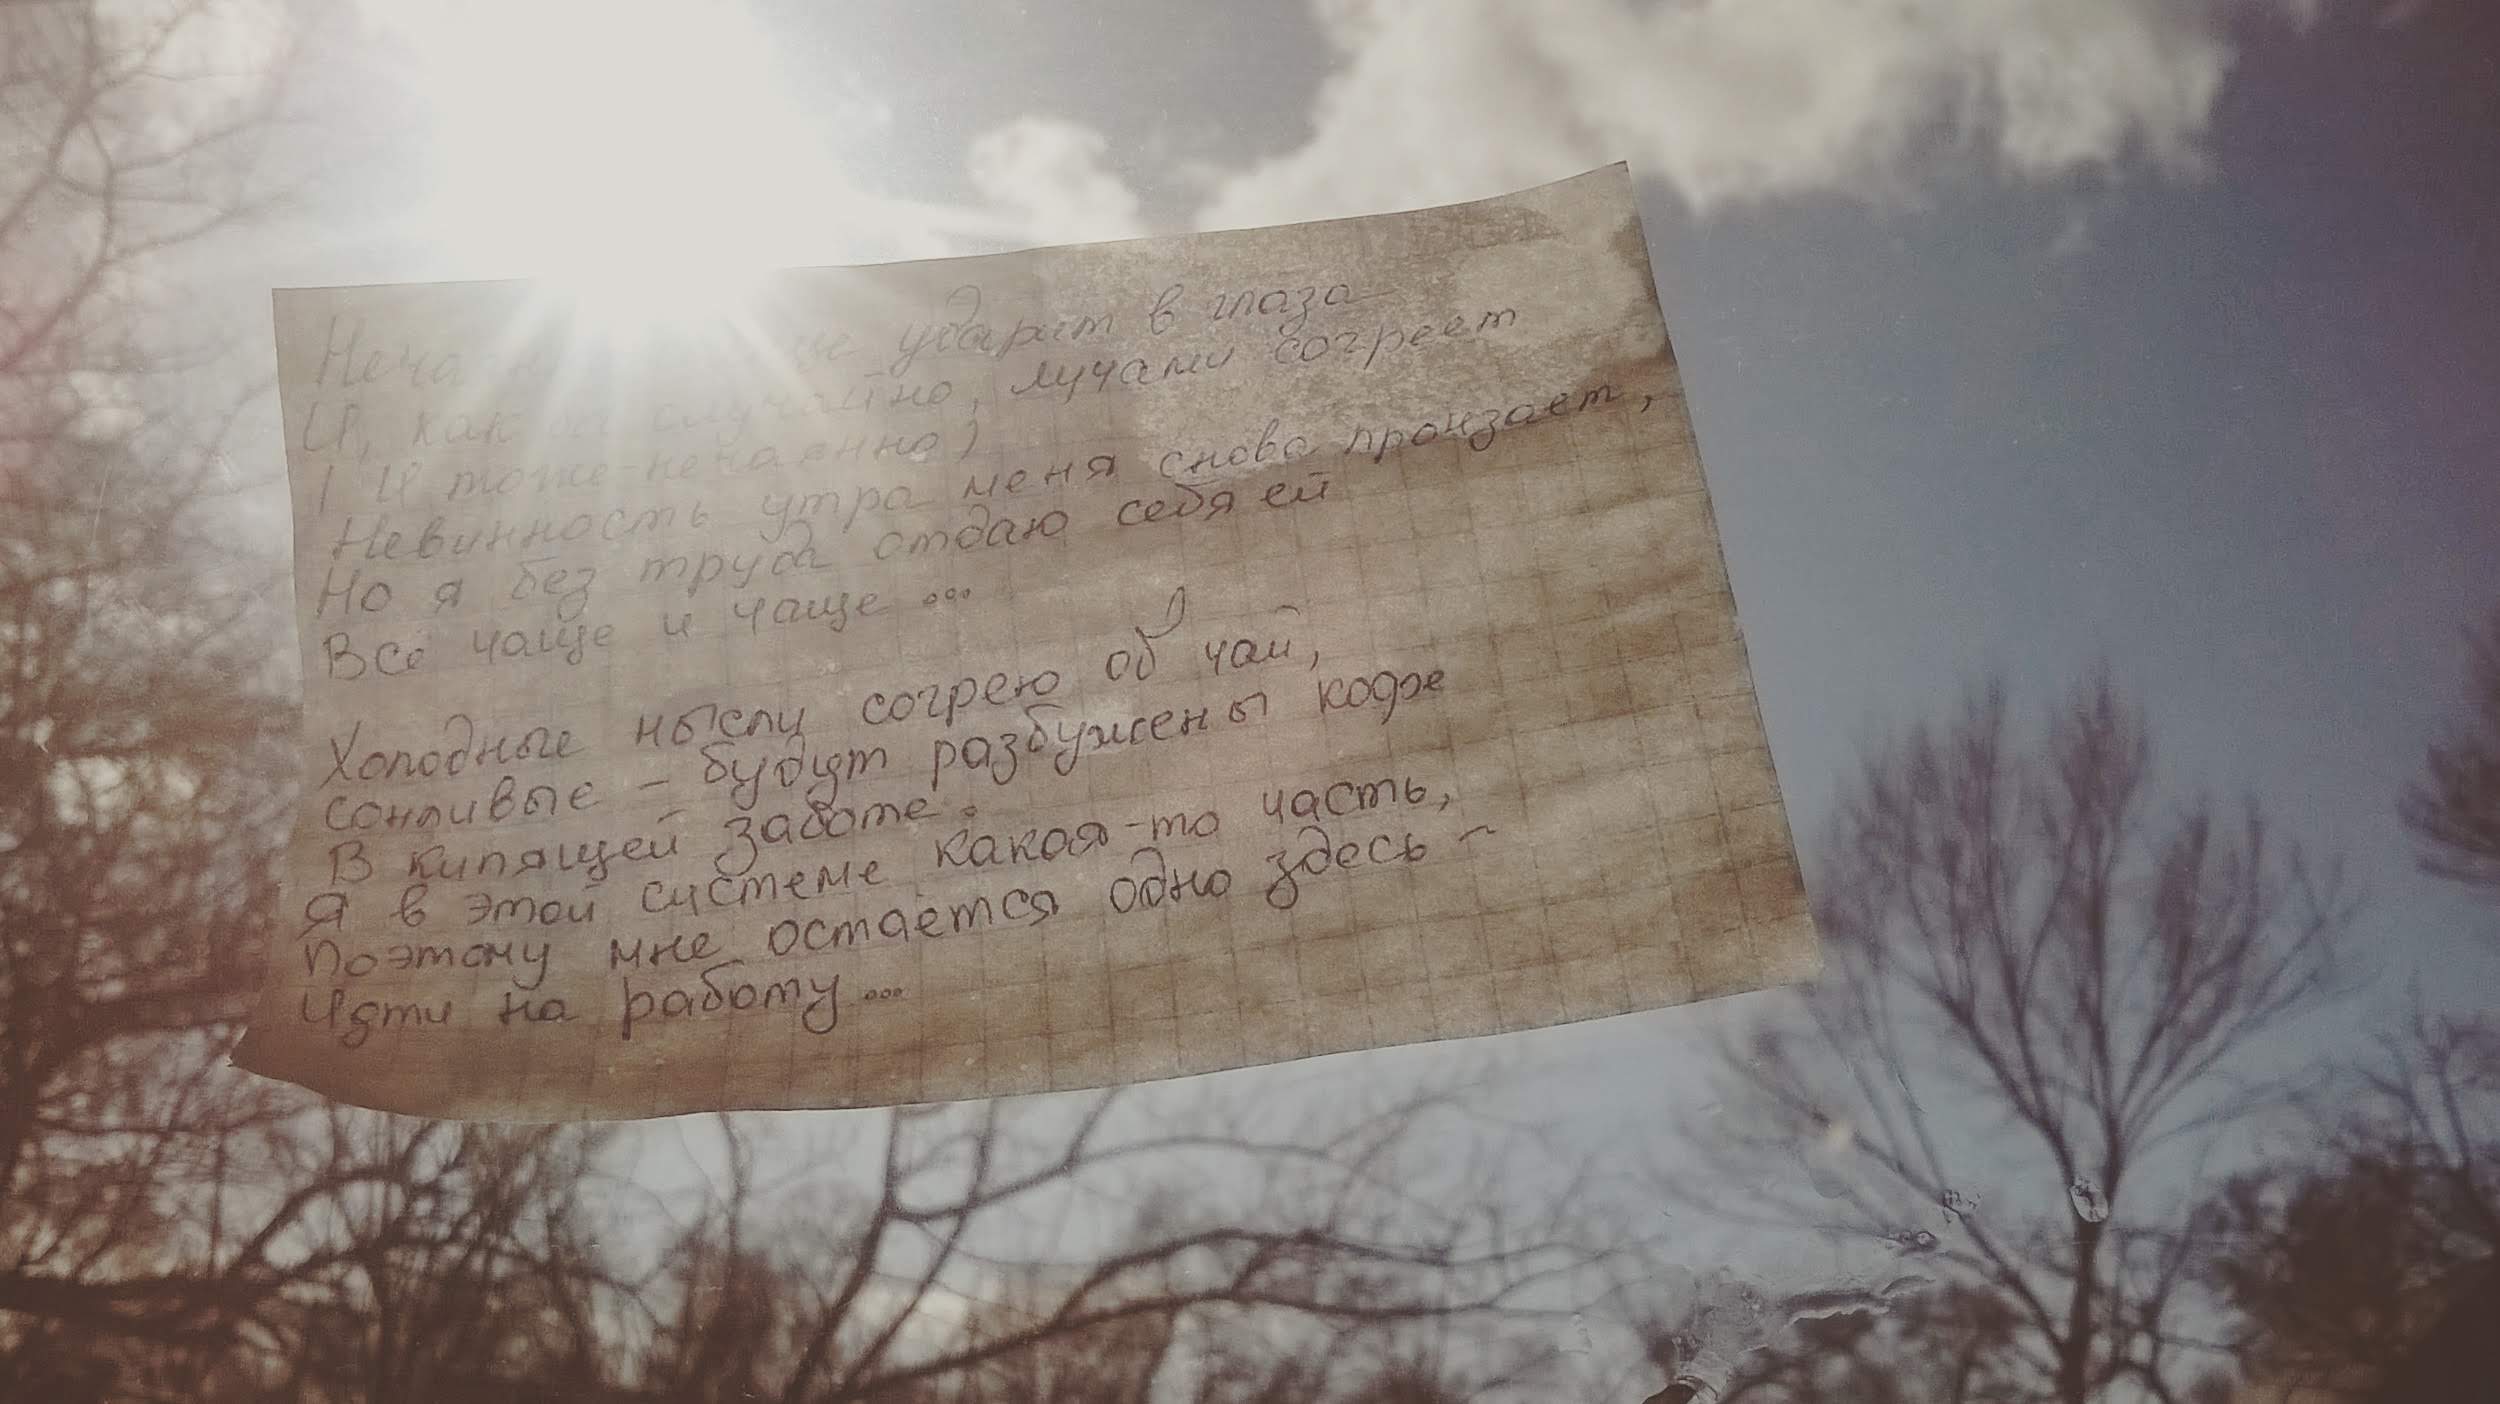 ударит в глаза
И, как бы случайно, лучами согреет
( И тоже - нечаянно )
Невинность утра меня снова пронзает,
Но я без труда отдаю себя ей
Всё чаще и чаще ...
Холодные мысли согрею об чай,
сонливые - будут разбужены кофе
В кипящей заботе.
Я в этой системе какая-то часть,
Поэтому мне остаётся одно здесь -
Идти на работу ...